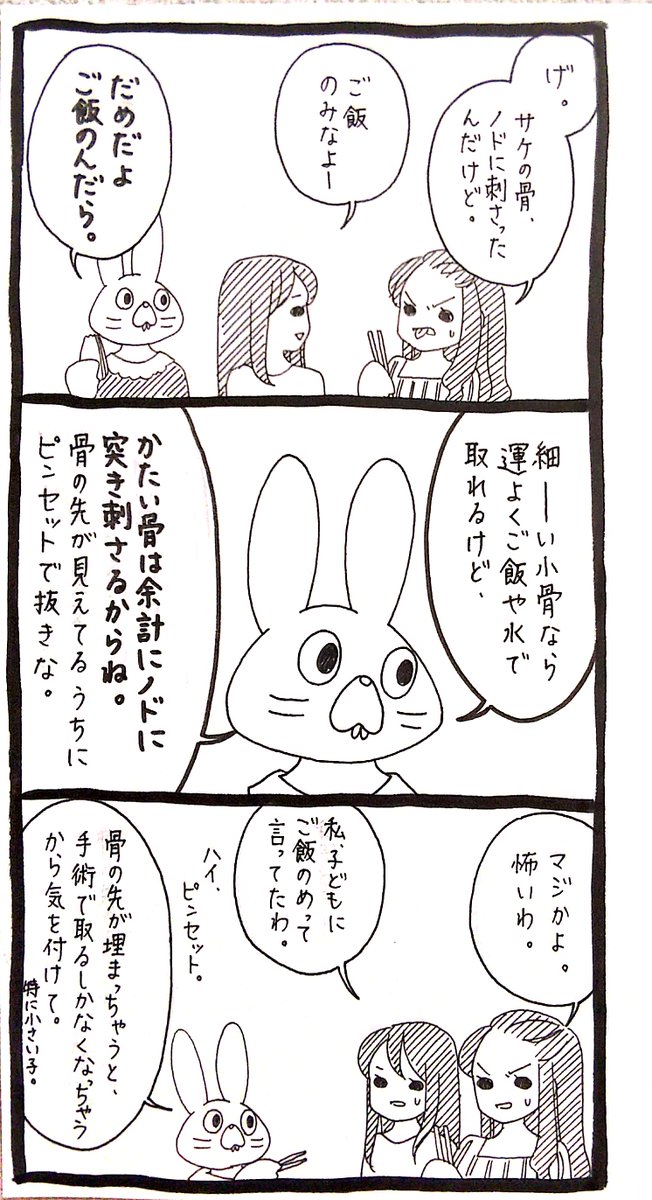 げ。
サケの骨、
ノドに刺さった
んだけど。
ご飯
のみなよー
だめだよ
ご飯のんだら。
細ーい小骨なら
運よくご飯や水で
取れるけど、
かたい骨は余計にノドに
突き刺さるからね。
骨の先が見えてるうちに
ピンセットで抜きな。
マジかよ。
怖いわ。
私、子どもに
ご飯のめって
言ってたわ。
ハイ、
ピンセット。
骨の先が埋まっちゃうと、
手術で取るしかなくなっちゃう
から気を付けて。
特に小さい子。